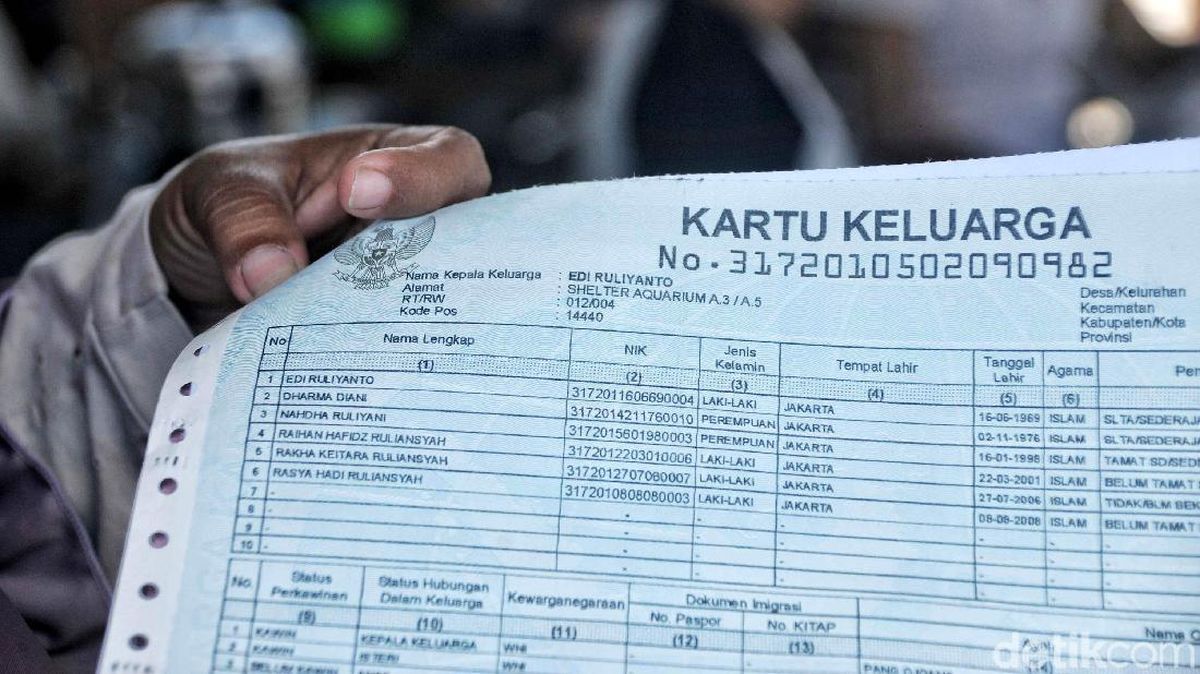 KARTU KELUARGA
No. 3172010502090982
Nama Kepala Keluarga : EDI RULIYANTO
Alamat : SHELTER AQUARIUM A.3 / A.5
RT/RW : 012/004
Kode Pos : 14440
Desa/Kelurahan
Kecamatan
Kabupaten/Kota
Provinsi
No Nama Lengkap NIK Jenis Kelamin Tempat Lahir Tanggal Lahir Agama
(1) (2) (3) (4) (5) (6)
1 EDI RULIYANTO 3172011606690004 LAKI-LAKI JAKARTA 16-06-1969 ISLAM SLTA/SEDERAJA
2 DHARMA DIANI 3172014211760010 PEREMPUAN JAKARTA 02-11-1976 ISLAM SLTA/SEDERAJA
3 NAHDHA RULIYANI 3172015601980003 PEREMPUAN JAKARTA 16-01-1998 ISLAM TAMAT SD/SEDERA
4 RAIHAN HAFIDZ RULIANSYAH 3172012203010006 LAKI-LAKI JAKARTA 22-03-2001 ISLAM BELUM TAMAT S
5 RAKHA KEITARA RULIANSYAH 3172012707060007 LAKI-LAKI JAKARTA 27-07-2006 ISLAM TIDAK/BLM SEK
6 RASYA HADI RULIANSYAH 3172010808080003 LAKI-LAKI JAKARTA 08-08-2008 ISLAM BELUM TAMAT
7 -
8 -
9 -
10 -
No Status Perkawinan Status Hubungan Dalam Keluarga Kewarganegaraan Dokumen Imigrasi
No. Paspor No. KITAP Nama O
(9) (10) (11) (12) (13) (14)
1 KAWIN KEPALA KELUARGA WNI
2 KAWIN ISTERI WNI
3 BELUM KAWIN
detikcom